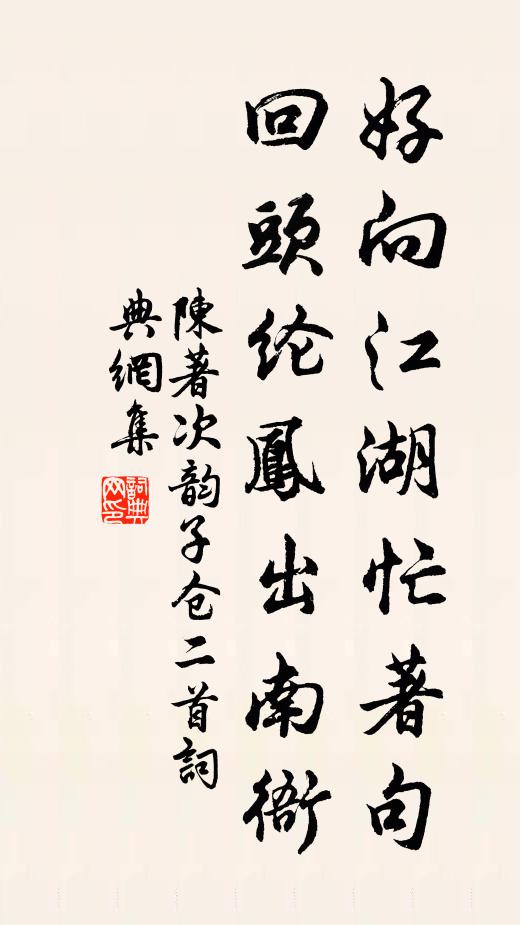 好向江湖忙著句
回頭纶鳳出南衙
陳著次韵子仓二首詞
典網集
詞典
网印